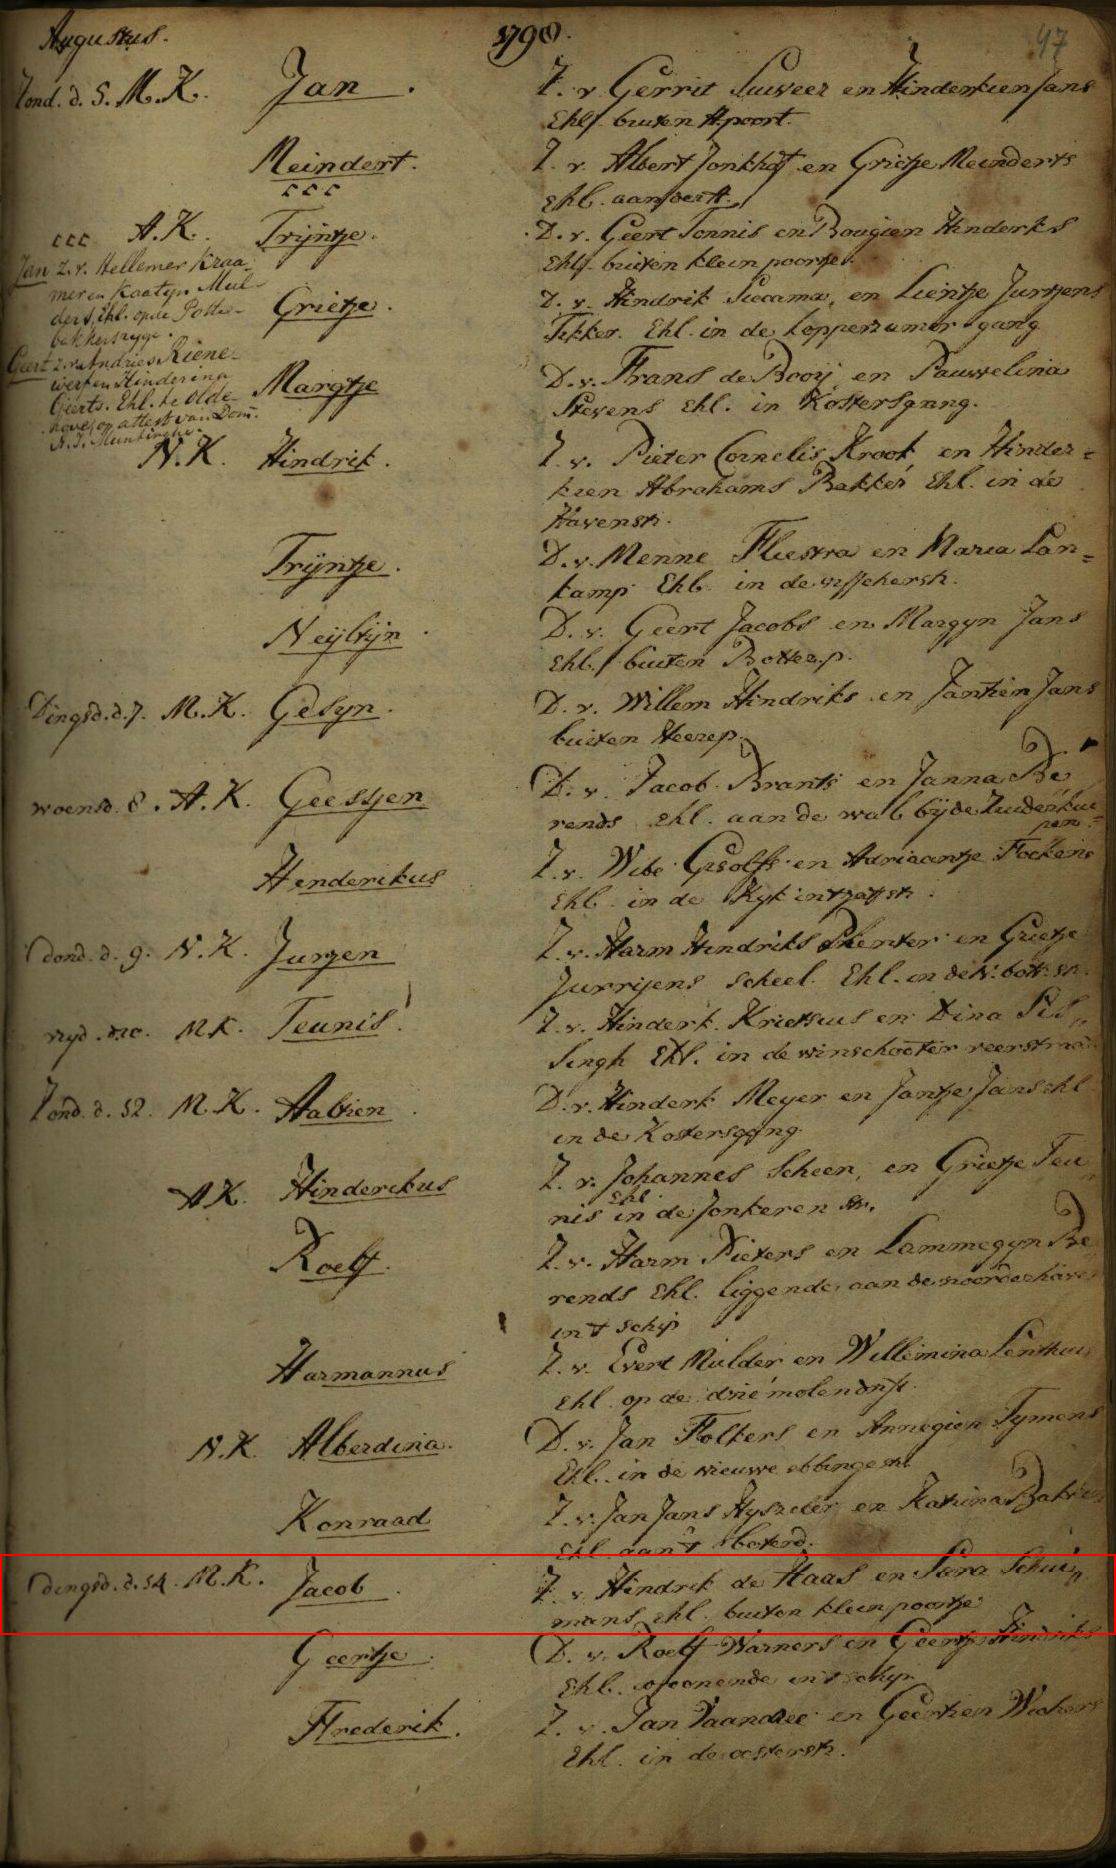 Augustus. 1798. 47
Zond. d. 5. M.K. Jan. Z. v. Gerrit Suiveer en Hinderkien Jans
Ehl. buiten A.poort.
Meindert. Z. v. Albert Jonkhof en Grietje Meinderts
ccc Ehl. aan der A.
ccc A.K. Trijntje. D. v. Geert Tonnis en Bougien Hinderks
Ehl. buiten kleinpoortje.
Jan Z. v. Hellemer Kraa-
mer en Kaatyn Mul-
ders, Ehl. op de Potte-
bakkersrygge.
Grietje. D. v. Hindrik Siccama, en Lientje Jurjens
Tekker. Ehl. in de Lopperzumer gang
Geert z. v. Andries Riene-
werf en Hinderina
Geerts. Ehl. te olde-
hove, op attest van Dom.
N. J. Muntinghe.
Margtje D. v. Frans de Booij en Pauwelina
Stevens Ehl. in Kostersgang.
N.K. Hindrik. Z. v. Pieter Cornelis Krook en Hinder-
kien Abrahams Bakker Ehl. in de
Havenstr.
Trijntje. D. v. Menne Fliestra en Maria Lan-
kamp Ehl. in de visscherstr.
Neijltijn. D. v. Geert Jacobs en Margyn Jans
Ehl. buiten Botterp.
Dingsd. d. 7. M.K. Gesyn. D. v. Willem Hindriks en Jantien Jans
buiten Heerep.
woensd. 8. A.K. Geessjen D. v. Jacob Brants en Janna Be
rends Ehl. aan de wal bij de Zuiderkui
pen
Henderikus Z. v. Wibe Geolfs en Adriaantje Fockens
Ehl. in de Kyk int jatstr.
Dond. d. 9. N.K. Jurjen Z. v. Harm Hindriks Drenter en Grietje
Jurrijens Scheel. Ehl. in de N. bott. str.
vryd. d. 10. M.K. Teunis. Z. v. Hinderk. Krietsius en Dina Sis
singh Ehl. in de winschoter veerstraat
Zond. d. 12. M.K. Aaltien. D. v. Hinderk Meyer en Jantje Jans ehl
in de Kostersgang
A.K. Hinderikus Z. v. Johannes Scheen, en Grietje Teu
nis Ehl in de Jonkeren str.
Roelf. Z. v. Harm Pieters en Lammegyn Be
rends Ehl. liggende aan de noorderhaven
in't schip
Harmannus Z. v. Evert Mulder en Willemina Lenthuis
Ehl. op de drie molendrift.
N.K. Alberdina. D. v. Jan Folkers en Annegien Tymens
Ehl. in de nieuwe ebbingestr.
Konraad Z. v. Jan Jans Hyszeler en Katrina
Ehl. aan't boterd.
dingsd. d. 14. M.K. Jacob. Z. v. Hindrik de Haas en Sara Schui
mans ehl. buiten kleinpoortje
Geertje. D. v. Roelf Warners en Geertje Hindriks
Ehl. woonende in't schip
Frederik. Z. v. Jan Vaandree en Geertien Wichers
Ehl. in de oosterstr.